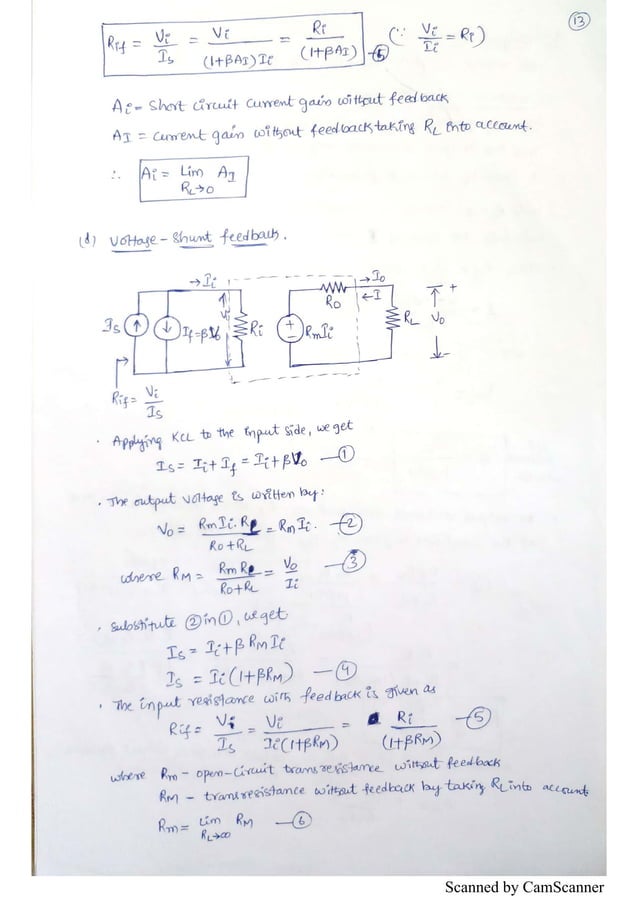 13
Rif = Vi/Is = Vi/((1+βAI)Ii) = Ri/(1+βAI) —⑤ (∵ Vi/Ii = Ri)
Ai = Short circuit current gain without feedback
AI = current gain without feedback taking RL into account.
∴ Ai = Lim AI
RL→0
(d) Voltage - Shunt feedback.
→Ii →Io
←I
Ro
Is If=βVo Vi Ri RmIi RL Vo + -
Rif = Vi/Is
· Applying KCL to the input side, we get
Is = Ii + If = Ii + βVo —①
· The output voltage is written by:
Vo = RmIi.RL/(Ro+RL) = RmIi. —②
where RM = RmRL/(Ro+RL) = Vo/Ii —③
· Substitute ② in ①, we get
Is = Ii + βRMIi
Is = Ii(1+βRM) —④
· The input resistance with feedback is given as
Rif = Vi/Is = Vi/(Ii(1+βRM)) = Ri/(1+βRM) —⑤
where Rm - open-circuit transresistance without feedback
RM - transresistance without feedback by taking RL into account
Rm = Lim RM —⑥
RL→∞
Scanned by CamScanner